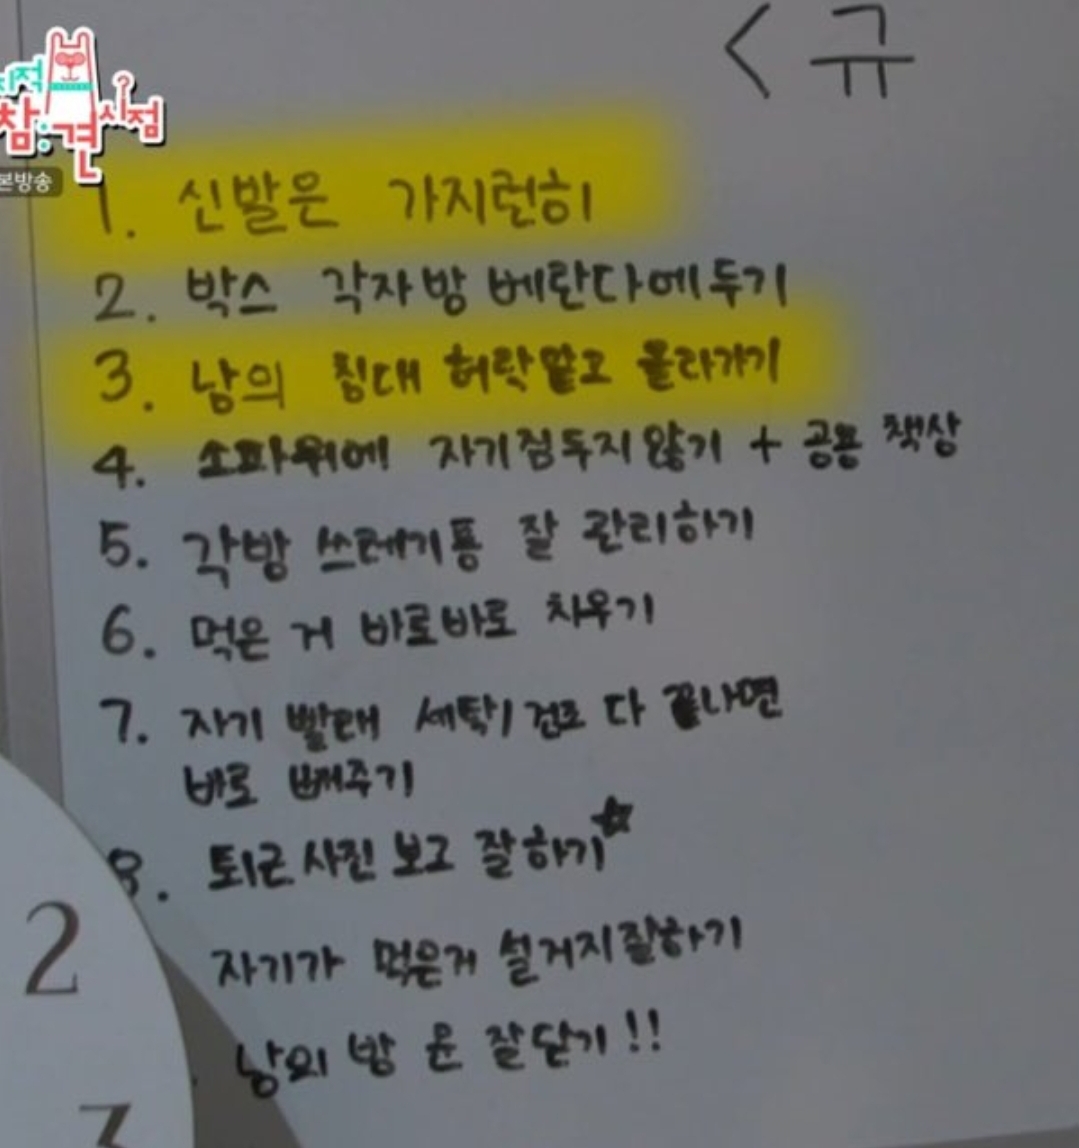 < 규
참견 시점
본방송
1. 신발은 가지런히
2. 박스 각자방 베란다에 두기
3. 남의 침대 허락맡고 올라가기
4. 소파위에 자기짐두지않기 + 공용 책상
5. 각방 쓰레기통 잘 관리하기
6. 먹은 거 바로바로 치우기
7. 자기 빨래 세탁/건조 다 끝나면
바로 빼주기
8. 퇴근 사진 보고 잘하기☆
자기가 먹은거 설거지잘하기
남의 방 문 잘닫기!!
2
3